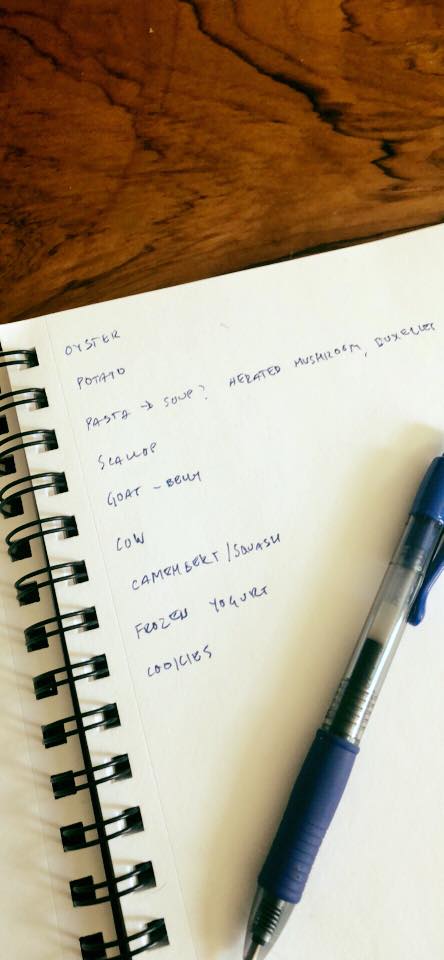 OYSTER
POTATO
PASTA → SOUP? AERATED MUSHROOM, DUXELLES
SCALLOP
GOAT - BELLY
COW
CAMEMBERT/SQUASH
FROZEN YOGURT
COOKIES